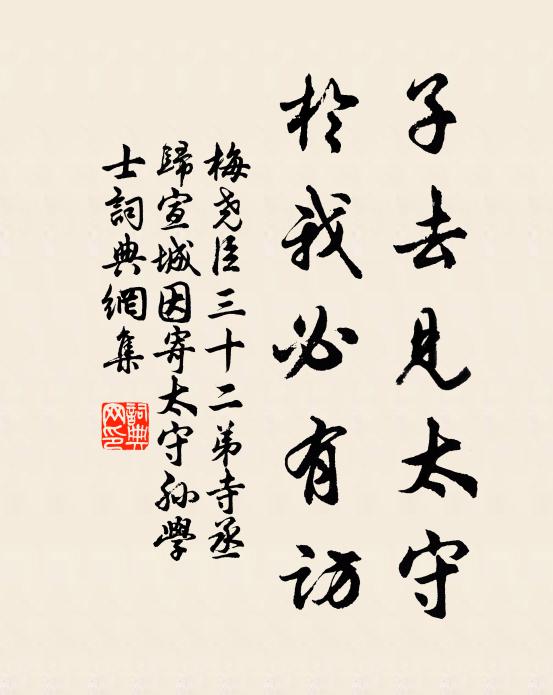 子去見太守
於我必有訪
梅尧臣三十二弟寺丞
歸宣城因寄太守孙學
士詞典網集
詞典
网印